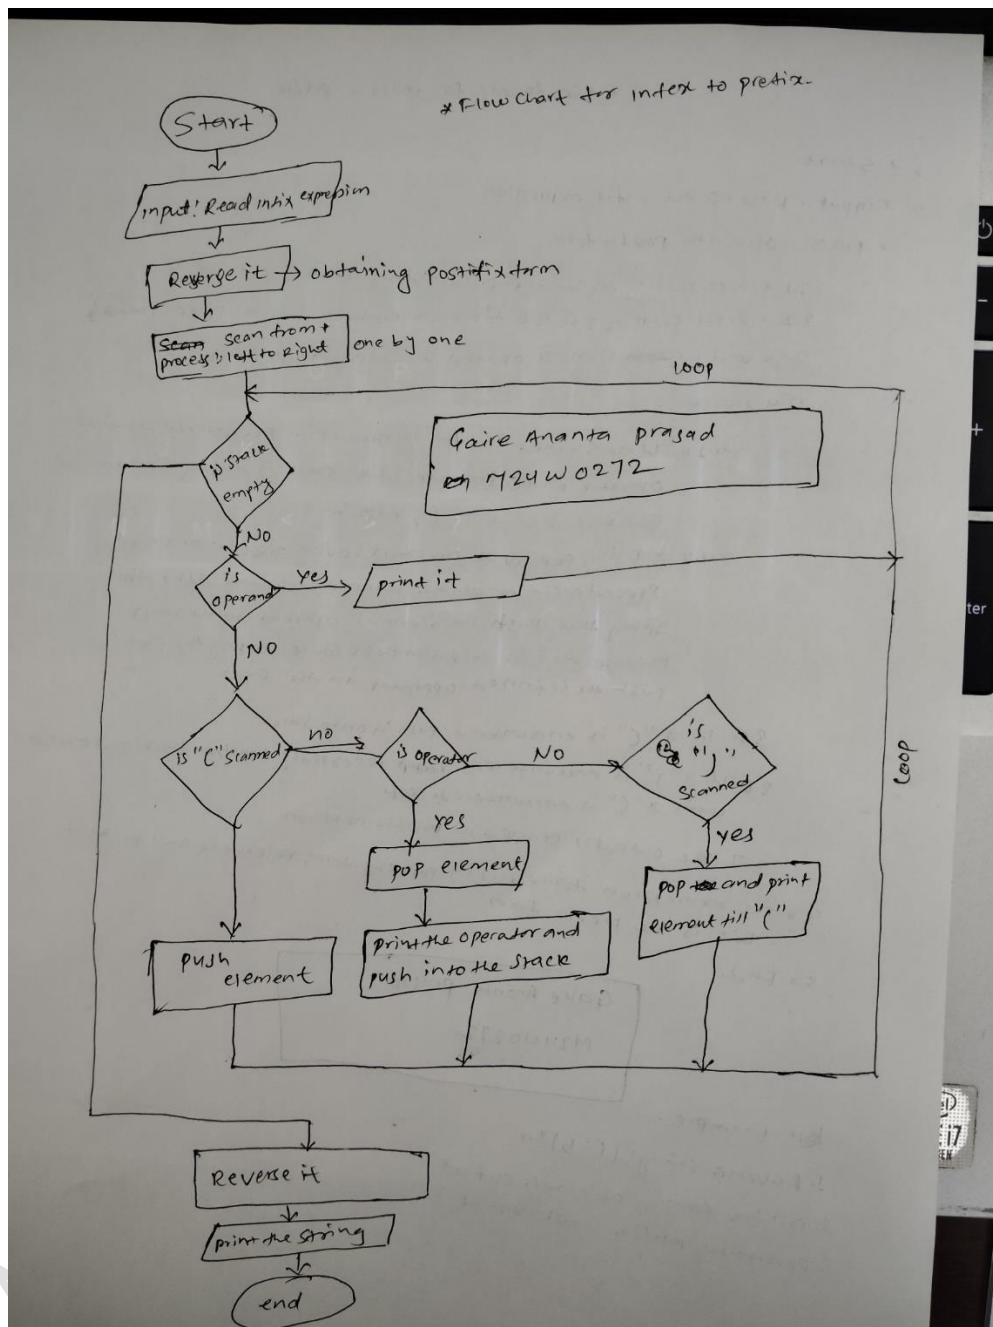 * Flow Chart for infex to prefix.
Start
input: Read infix expression
Reverse it → obtaining postifix form
Scan scan from +
process: left to Right
one by one
Loop
Gaire Ananta prasad
M24W0272
is stack
empty
NO
is
operand
Yes
print it
NO
is "(" Scanned
no
is operator
NO
is
")"
Scanned
Loop
Yes
Yes
pop element
pop and print
element till "("
push
element
print the operator and
push into the stack
Reverse it
print the string
end
+
ter
i7